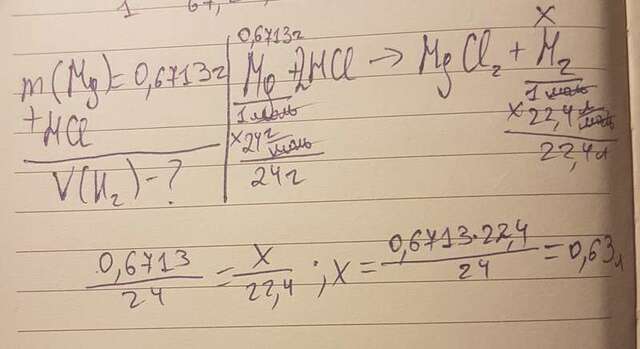 1 67,
m(Mg)=0,6713г
+HCl
V(H₂)-?
0,6713г X
Mg+2HCl → MgCl₂ + H₂
1 моль 1 моль
×24 г/моль ×22,4 л/моль
24г 22,4л
0,6713/24 = X/22,4 ; X = 0,6713·22,4/24 = 0,63л